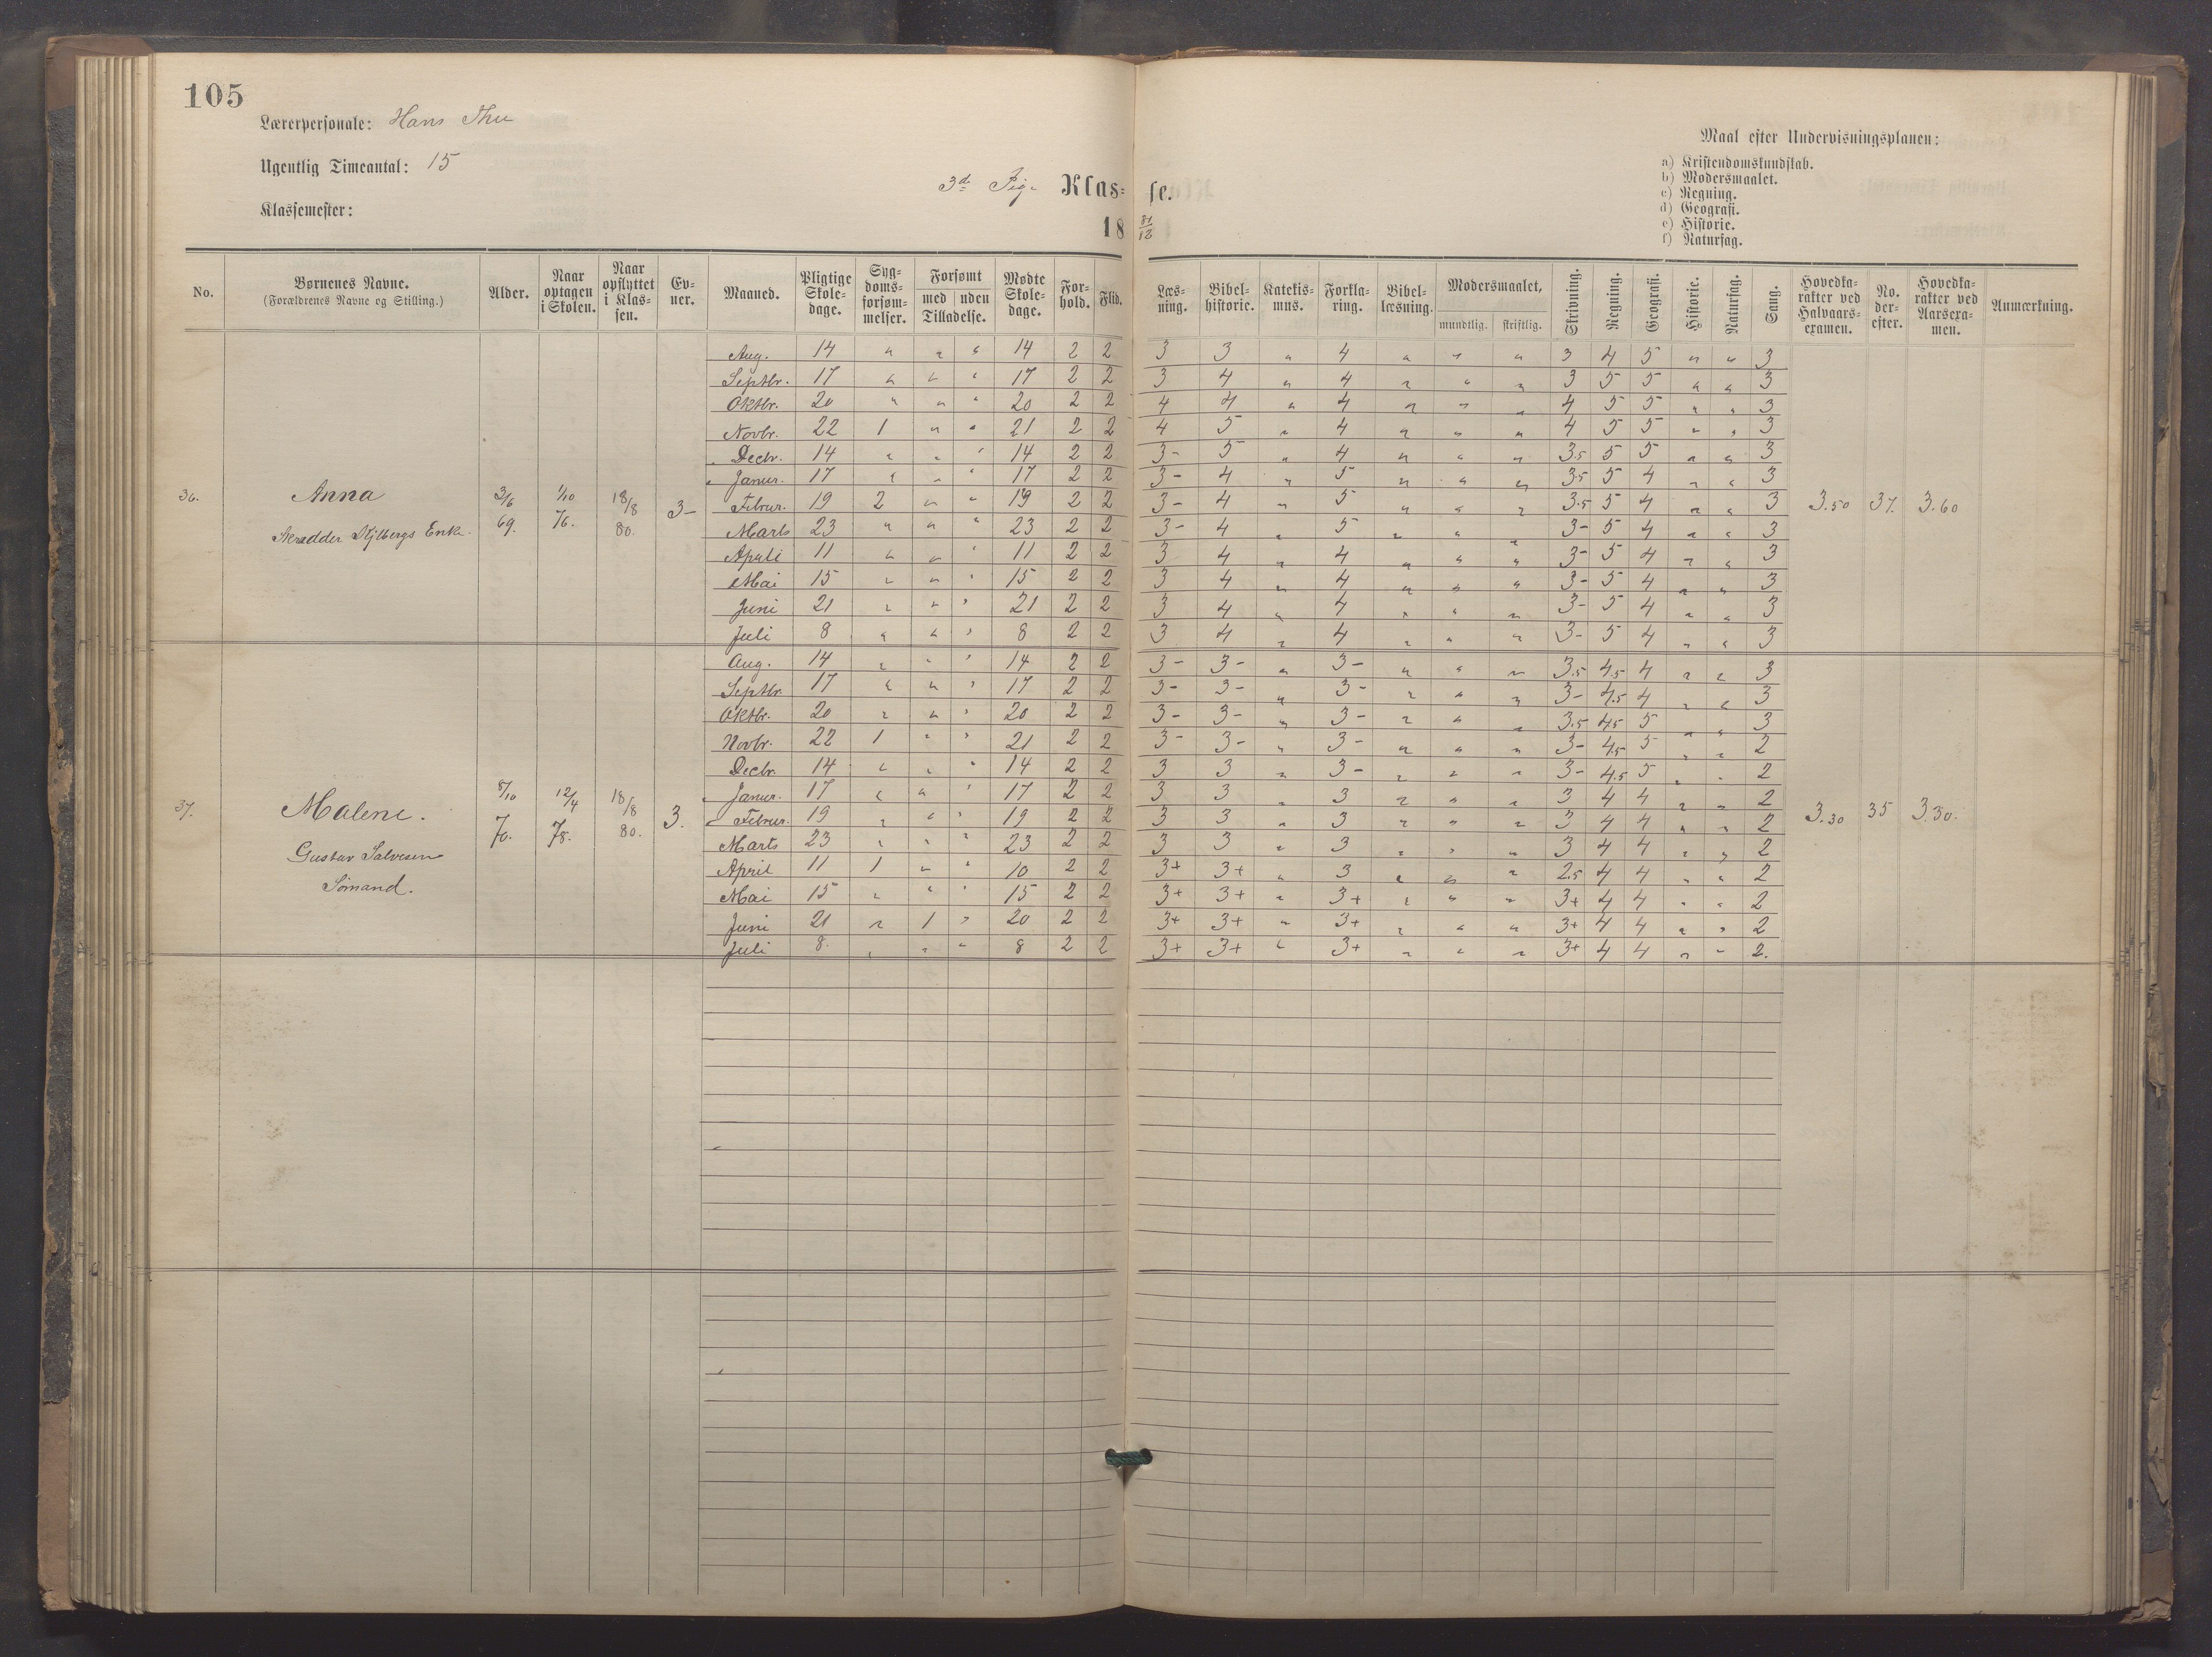 105
Lærerpersonale: Hans Thu
Ugentlig Timeantal: 15
Klassemester:
3d Pige Klas=
se.
18 81/82
Maal efter Undervisningsplanen:
a) Kristendomskundskab.
b) Modersmaalet.
c) Regning.
d) Geografi.
e) Historie.
f) Naturfag.
No. Børnenes Navne. (Forældrenes Navne og Stilling.) Alder. Naar optagen i Skolen. Naar opflyttet i Klassen. Evner. Maaned. Pligtige Skoledage. Sygdomsforsømmelser. Forsømt med uden Tilladelse. Mødte Skoledage. Forhold. Flid. Læsning. Bibelhistorie. Katekismus. Forklaring. Bibellæsning. Modersmaalet, mundtlig. skriftlig. Skrivning. Regning. Geografi. Historie. Naturfag. Sang. Hovedkarakter ved Halvaarsexamen. No. derefter. Hovedkarakter ved Aarsexamen. Anmærkning.
36. Anna 3/6 69. 1/10 76. 18/8 80. 3- 3.50 37. 3.60
Skrædder Kjlbergs Enke.
Aug. 14 " " " 14 2 2 3 3 " 4 " " " 3 4 5 " " 3
Septbr. 17 " " " 17 2 2 3 4 " 4 " " " 3 5 5 " " 3
Oktbr. 20 " " " 20 2 2 4 4 " 4 " " " 4 5 5 " " 3
Novbr. 22 1 " " 21 2 2 4 5 " 4 " " " 4 5 5 " " 3
Decbr. 14 " " " 14 2 2 3- 5 " 4 " " " 3.5 5 5 " " 3
Janur. 17 " " " 17 2 2 3- 4 " 5 " " " 3.5 5 4 " " 3
Februr. 19 2 " " 19 2 2 3- 4 " 5 " " " 3.5 5 4 " " 3
Marts 23 " " " 23 2 2 3- 4 " 5 " " " 3- 5 4 " " 3
April 11 " " " 11 2 2 3 4 " 4 " " " 3- 5 4 " " 3
Mai 15 " " " 15 2 2 3 4 " 4 " " " 3- 5 4 " " 3
Juni 21 " " " 21 2 2 3 4 " 4 " " " 3- 5 4 " " 3
Juli 8 " " " 8 2 2 3 4 " 4 " " " 3- 5 4 " " 3
37. Malene. 8/10 70. 12/4 78. 18/8 80. 3. 3.30 35 3.30.
Gustav Salvesen
Sömand.
Aug. 14 " " " 14 2 2 3- 3- " 3- " " " 3.5 4.5 4 " " 3
Septbr 17 " " " 17 2 2 3- 3- " 3- " " " 3- 4.5 4 " " 3
Oktbr. 20 " " " 20 2 2 3- 3- " 3- " " " 3.5 4.5 5 " " 3
Novbr. 22 1 " " 21 2 2 3- 3- " 3- " " " 3- 4.5 5 " " 2
Decbr. 14 " " " 14 2 2 3 3 " 3- " " " 3- 4.5 5 " " 2
Janur. 17 " " " 17 2 2 3 3 " 3 " " " 3 4 4 " " 2
Februr. 19 " " " 19 2 2 3 3 " 3 " " " 3 4 4 " " 2
Marts 23 " " " 23 2 2 3 3 " 3 " " " 3 4 4 " " 2
April 11 1 " " 10 2 2 3+ 3+ " 3 " " " 2.5 4 4 " " 2
Mai 15 " " " 15 2 2 3+ 3+ " 3+ " " " 3+ 4 4 " " 2
Juni 21 " 1 " 20 2 2 3+ 3+ " 3+ " " " 3+ 4 4 " " 2
Juli 8. " " " 8 2 2 3+ 3+ " 3+ " " " 3+ 4 4 " " 2.